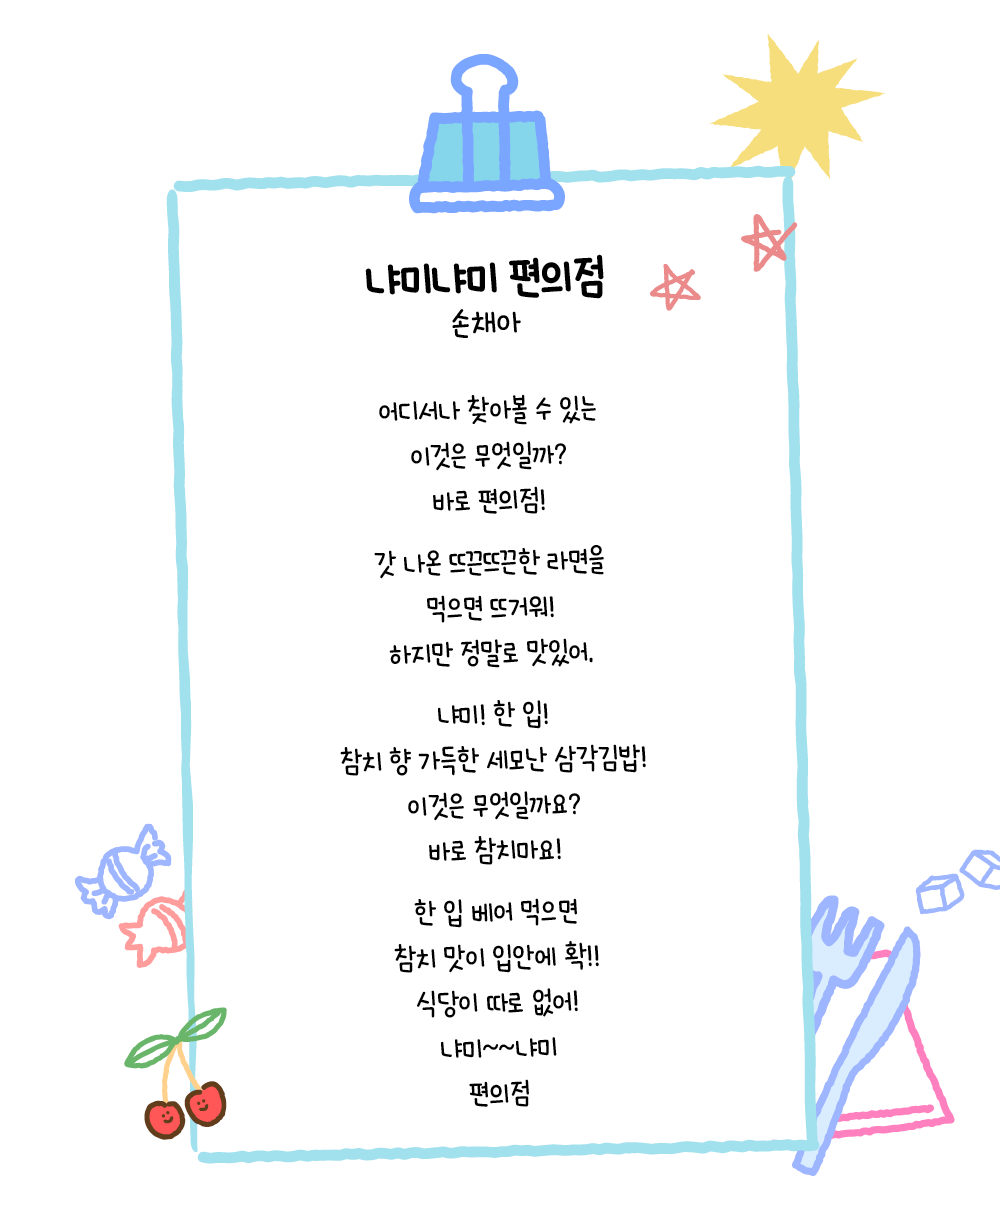 냐미냐미 편의점
손채아
어디서나 찾아볼 수 있는
이것은 무엇일까?
바로 편의점!
갓 나온 뜨끈뜨끈한 라면을
먹으면 뜨거워!
하지만 정말로 맛있어.
냐미! 한 입!
참치 향 가득한 세모난 삼각김밥!
이것은 무엇일까요?
바로 참치마요!
한 입 베어 먹으면
참치 맛이 입안에 확!!
식당이 따로 없어!
냐미~~냐미
편의점